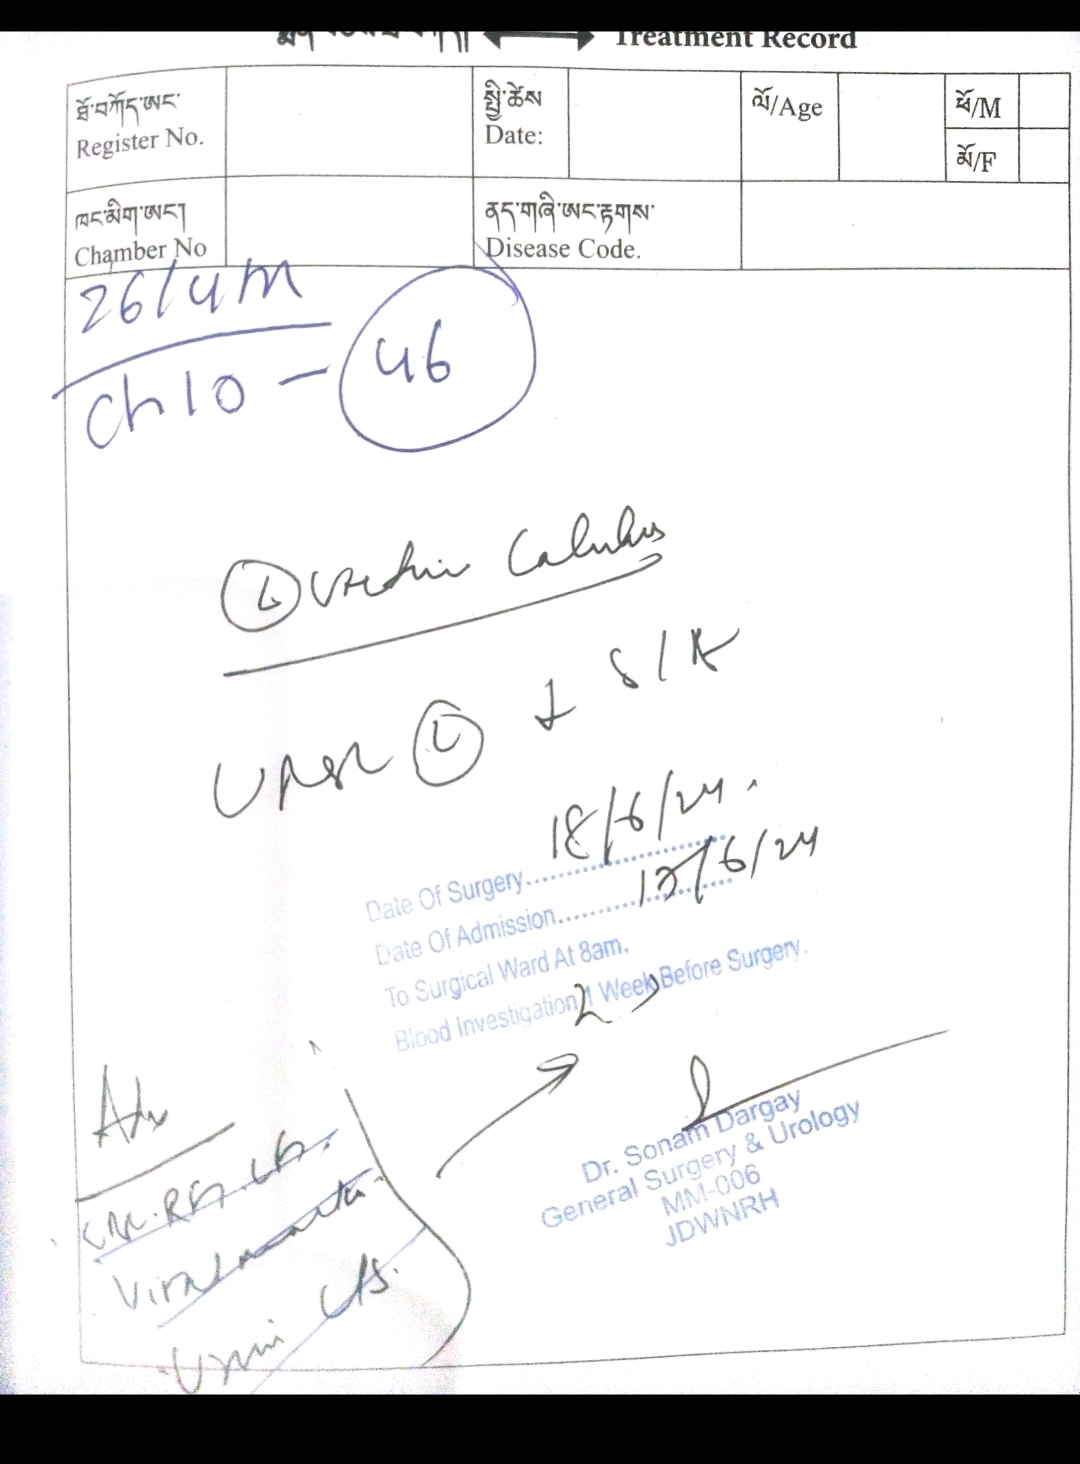 Treatment Record
ཐོ་བཀོད་ཨང་
Register No.
སྤྱི་ཚེས
Date:
ལོ/Age
ཕོ/M
མོ/F
ཁང་མིག་ཨང་།
Chamber No
ནད་གཞི་ཨང་རྟགས་
Disease Code.
26/4m
Ch 10 - 46
Ⓛ Calculus
URSL Ⓛ
18/6/24.
Date Of Surgery
Date Of Admission 6/24
To Surgical Ward At 8am.
Blood Investigation 1 Week Before Surgery.
Adv
Viral
Urine c/s.
Dr. Sonam Dargay
General Surgery & Urology
MM-006
JDWNRH